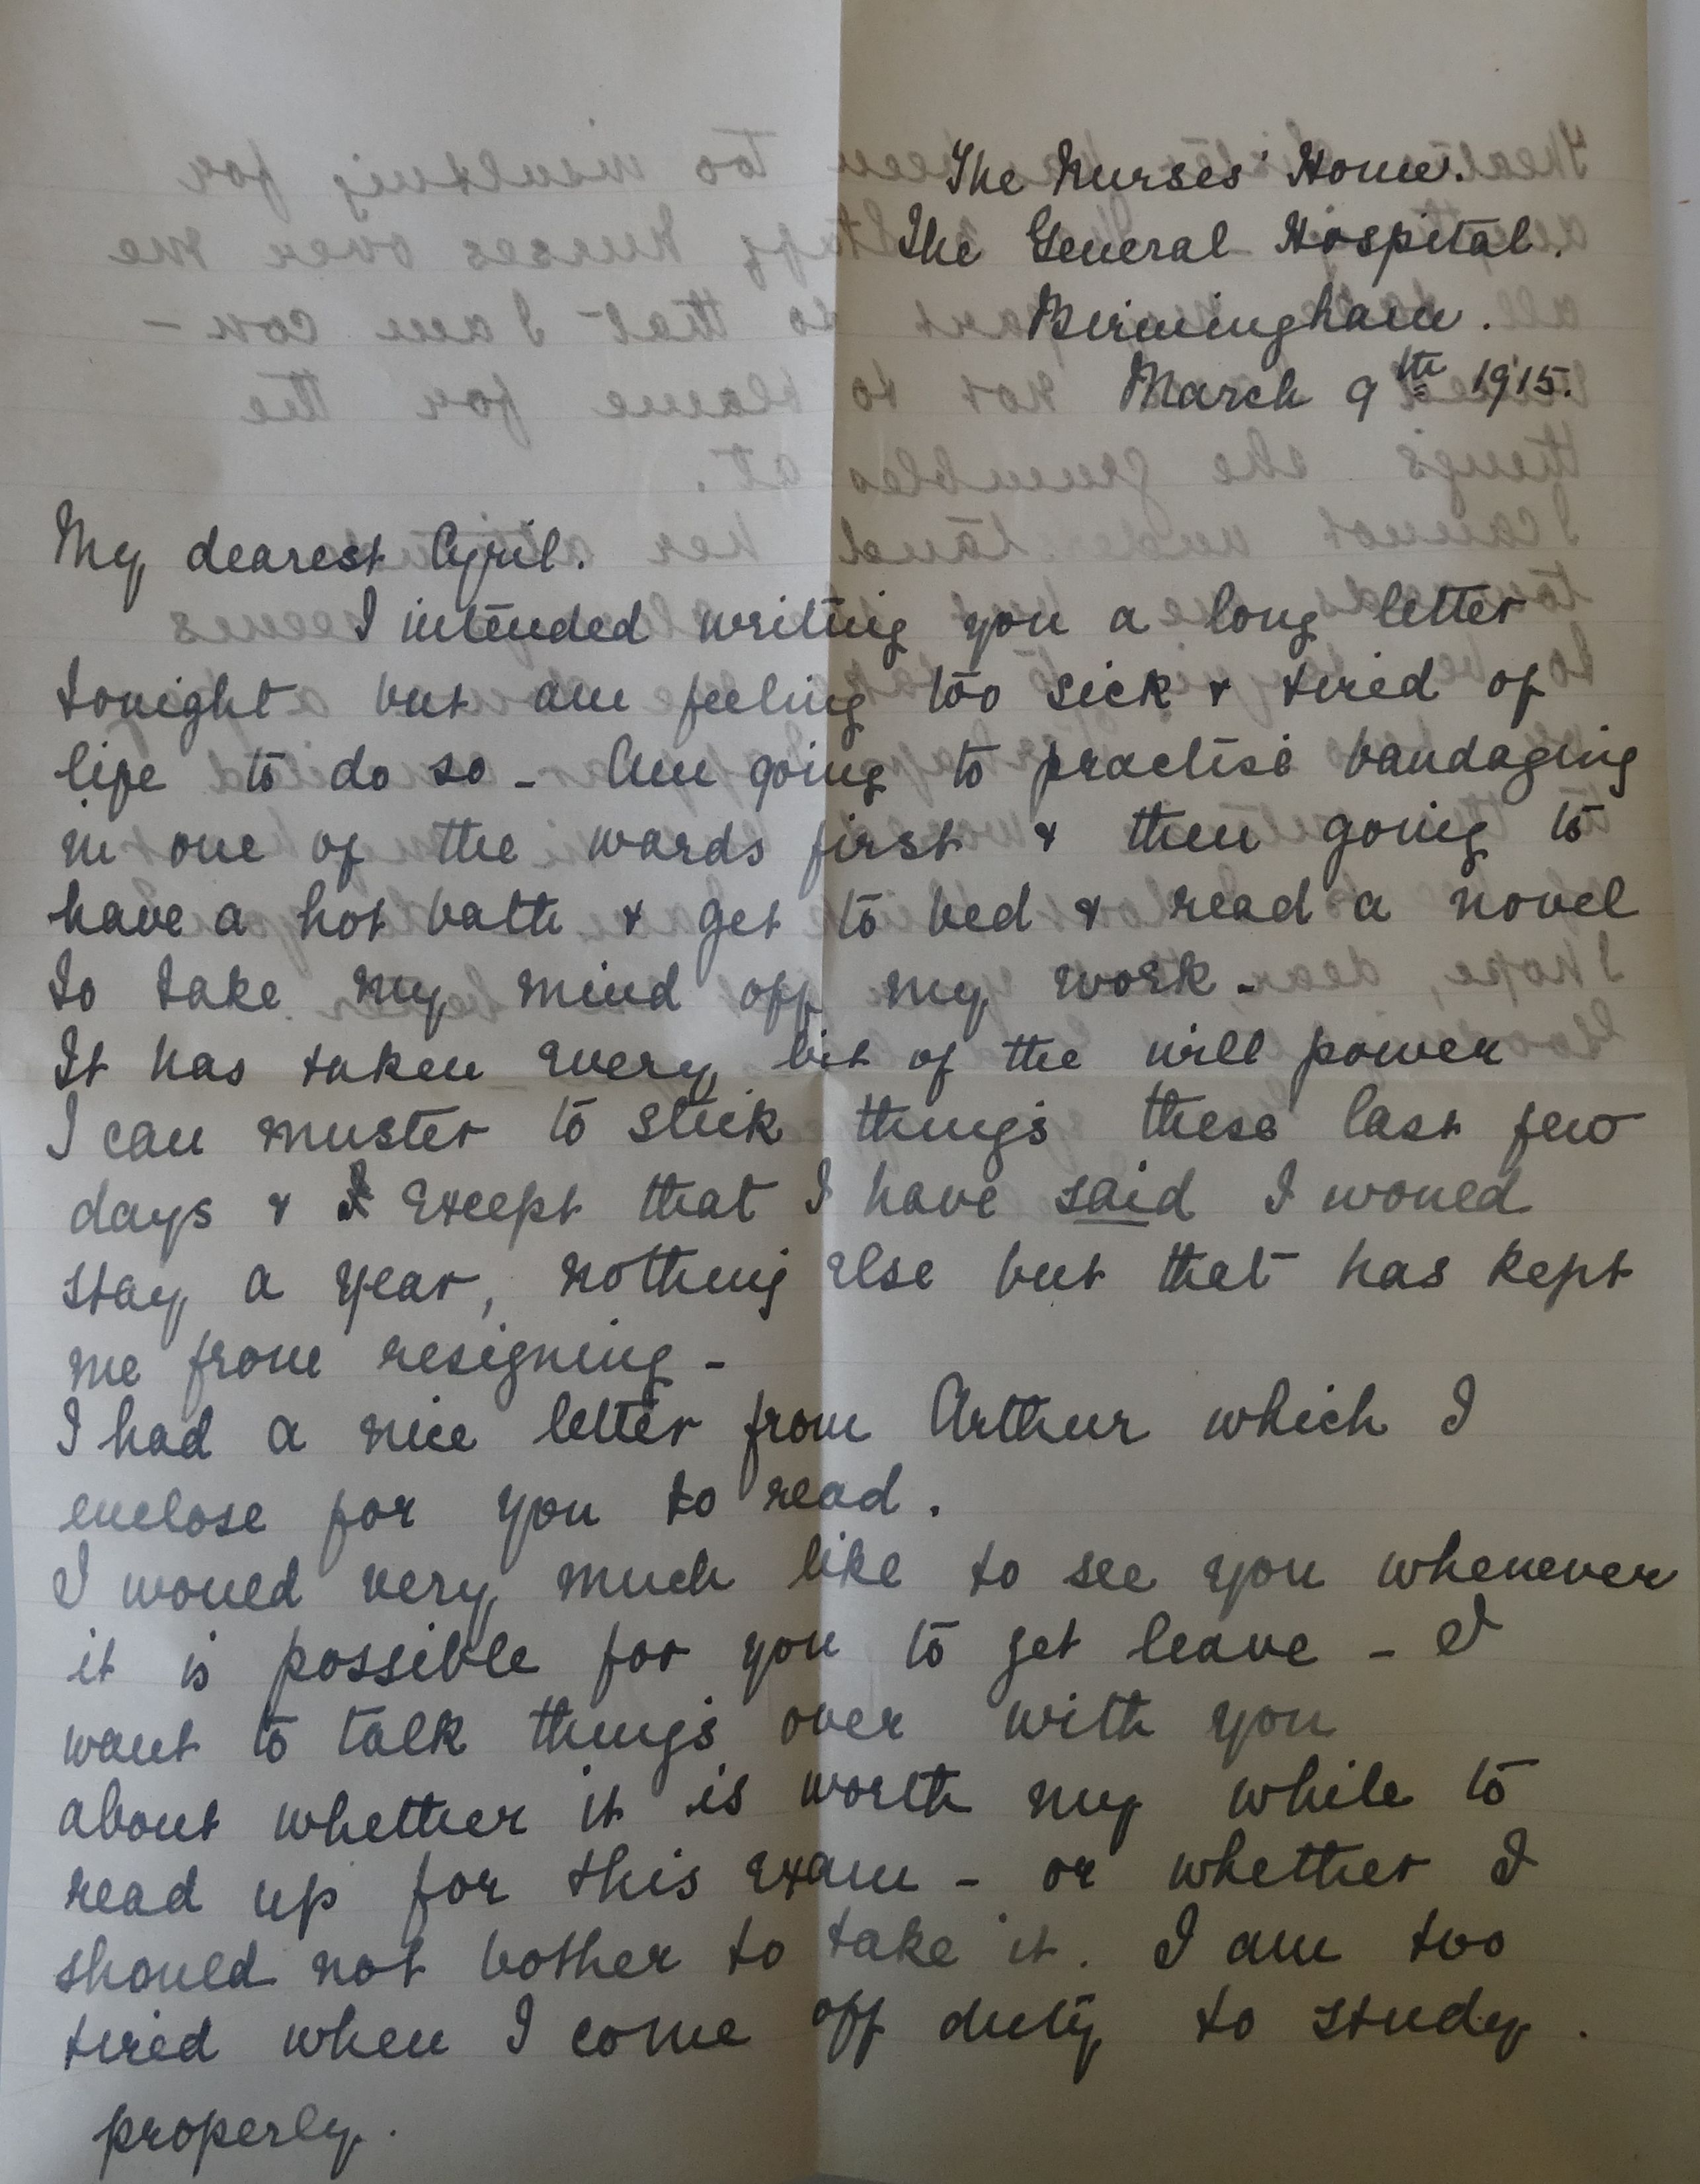 The Nurses' Home.
The General Hospital.
Birmingham.
March 9th 1915.
My dearest Cyril.
I intended writing you a long letter
tonight but am feeling too sick & tired of
life to do so - Am going to practise bandaging
in one of the wards first & then going to
have a hot bath & get to bed & read a novel
to take my mind off my work -
It has taken every bit of the will power
I can muster to stick things these last few
days & except that I have said I would
stay a year, nothing else but that has kept
me from resigning -
I had a nice letter from Arthur which I
enclose for you to read.
I would very much like to see you whenever
it is possible for you to get leave - I
want to talk things over with you
about whether it is worth my while to
read up for this exam - or whether I
should not bother to take it. I am too
tired when I come off duty to study.
properly.